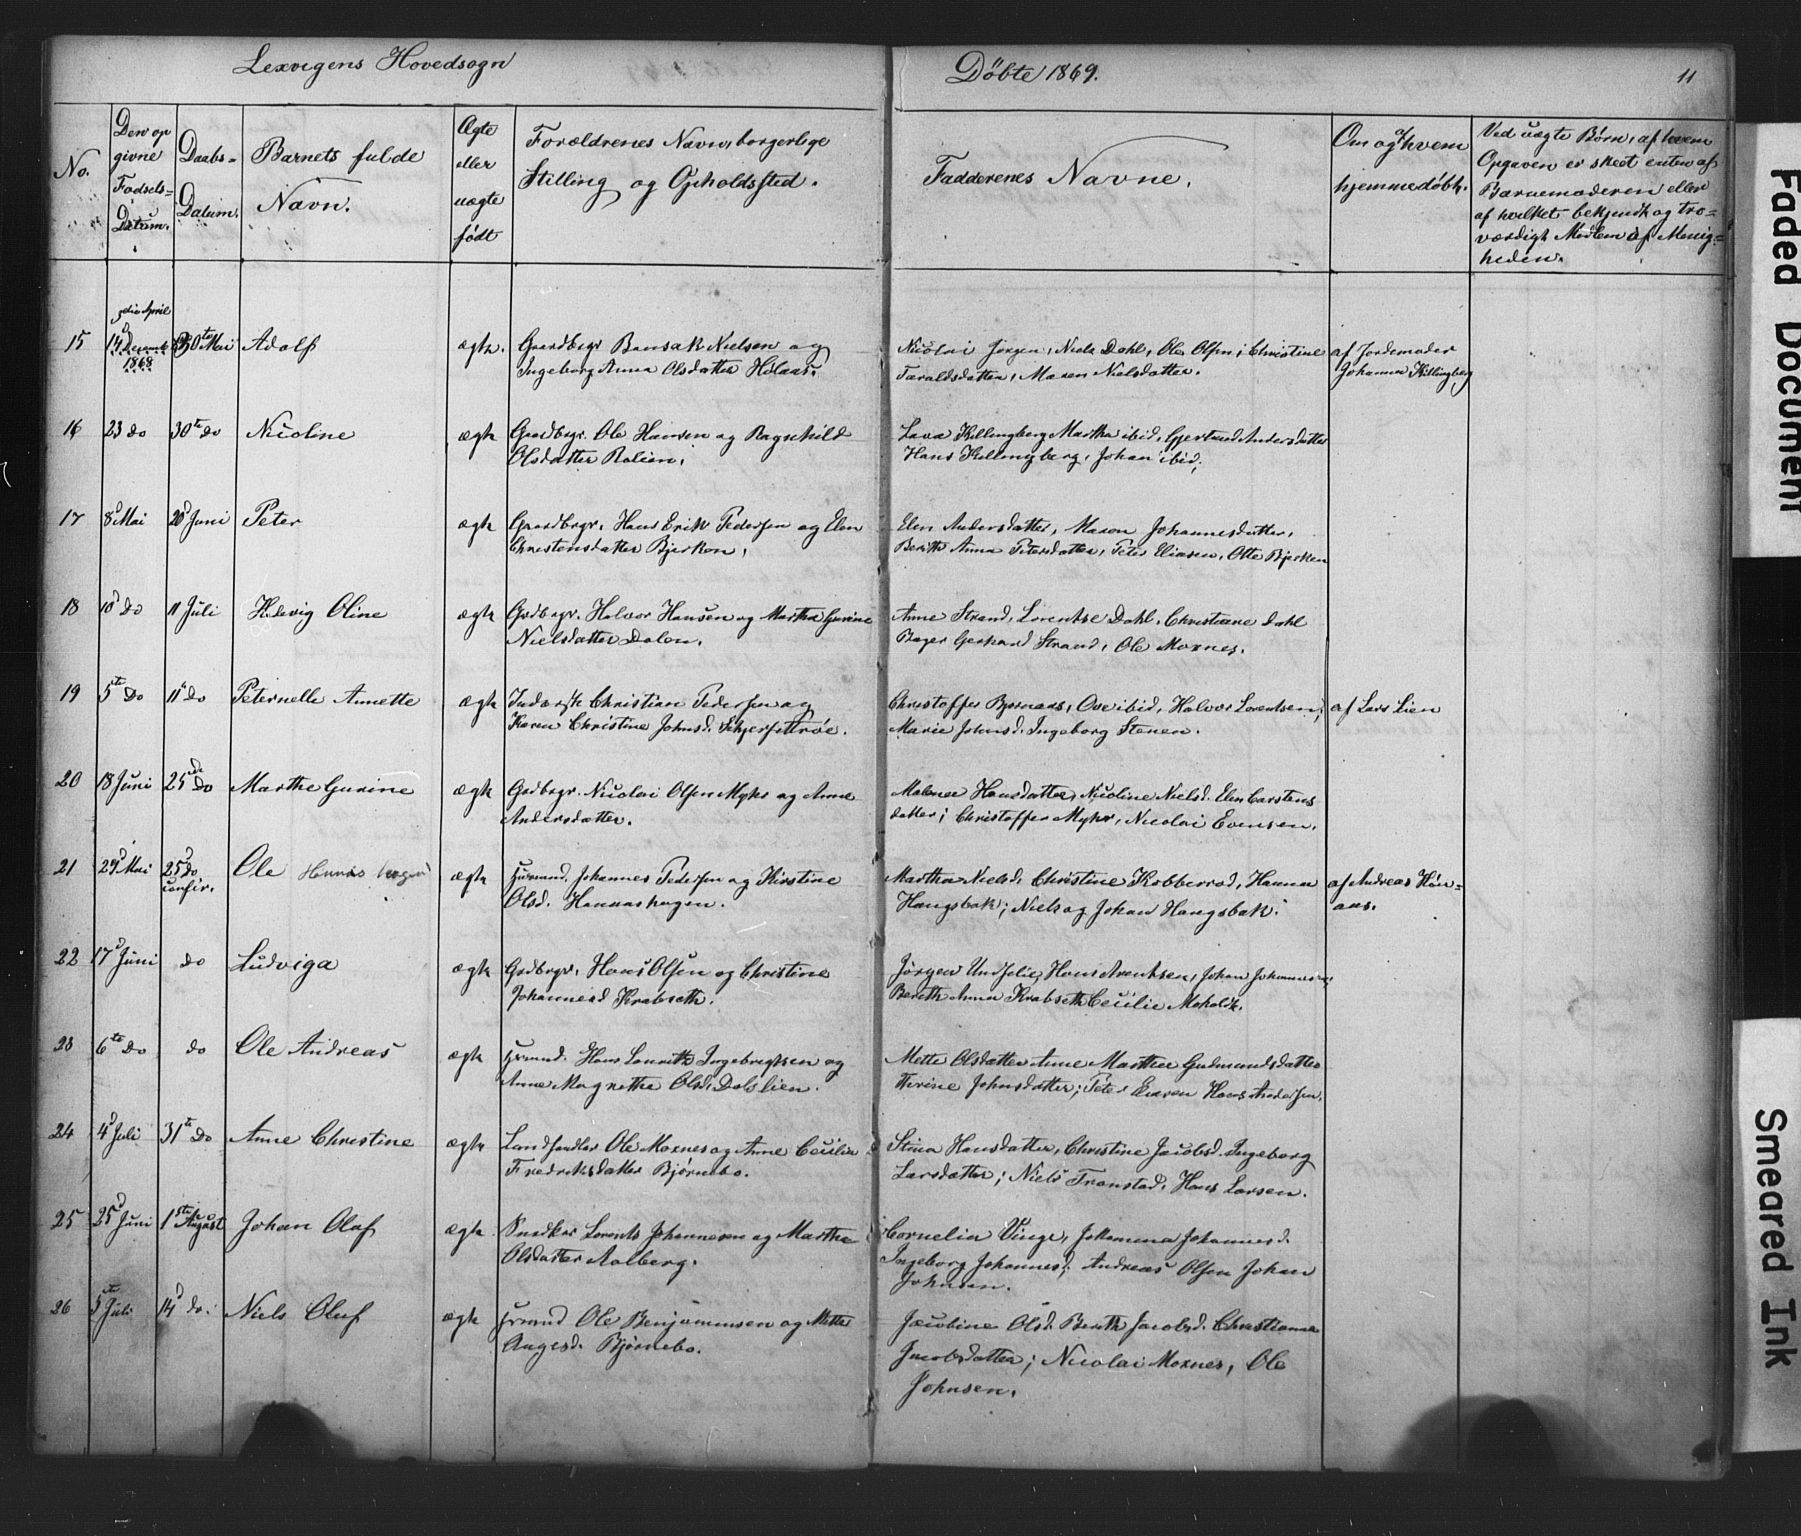 Lexvigens Hovedsogn
Döbte 1869.
11
No.
Den op
givne
Fødsels-
Datum.
Daabs-
Datum.
Barnets fulde
Navn.
Ægte
eller
uægte
født
Forældrenes Navn, borgerlige
Stilling og Opholdssted.
Fadderenes Navne.
Om og af hvem
hjemmedöbt.
Ved uægte Børn, af hvem
Opgaven er skeet enten af
Barnemoderen eller
af hvilket bekjendt og tro-
værdigt Medlem af Menig-
heden.
15 14 Decemb 1868 30te Mai Adolf ægte. Gaardbrgr Nielsen og
Ingeborg Anna Olsdatter
Nicolai Jörgen, Niels Dahl, Ole Olsen; Christine
Taraldsdatter, Maren Nielsdatter.
af Jordemoder
Johanna Killingberg
16 23 do 30te do Nicoline ægte Gaardbrgr. Ole Hansen og Ragnhild
Olsdatter
Killingberg Martha ibid, Gjertrud Andersdatter
Hans Killingberg, Johan ibid;
17 8d Mai 20d Juni Peter ægte Gaardbrgr. Hans Erik Pedersen og Elen
Christensdatter Bjerken,
Elen Andersdatter, Maren Johannesdatter,
Berith Anna Petersdatter, Peter Eliasen, Otte Bjerken
18 10d do 11 Juli Hedevig Oline ægte Grdbrgr. Halvor Hansen og Martha Gurine
Nielsdatter Dalen.
Anne Strand, Lorentse Dahl, Christiane Dahl
Gerhard Strand, Ole Moxnes.
19 5te do 11te do Peternelle Annette ægte Christian Pedersen og
Karen Christine Johnsd.
Christoffer Bjørnaas, Ove ibid, Halvor Lorentsen;
Marie Johnsd. Ingeborg Stenen.
af Lars Lien
20 18 Juni 25de do Marthe Gurine ægte Grdbrgr. Nicolai Olsen Myhr og Anne
Andersdatter.
Malene Hansdatter, Nicoline Nielsd. Elen Carstens
datter; Christoffer Myhr, Nicolai Evensen.
21 29d Mai 25d do
confir.
Ole ægte Husmd. Johannes Pedersen og Kirstine
Olsd. Hannashagen.
Martha Nielsd, Christine Kobberrød, Hanna
Hangsbak; Niels og Johan Hangsbak.
af Andreas Hön-
aas.
22 17d Juni do Ludviga ægte Grdbrgr. Hans Olsen og Christine
Johannesd Krabseth.
Jörgen Hans Arentsen, Johan
Bereth Anna Krabseth Cecilie
23 6te do do Ole Andreas ægte Husmd. Hans Lauritz Ingebrigtsen og
Anne Magrethe Olsd. Dalslien.
Mette Olsdatter Anne Marthe Gudmundsdatter
Johnsdatter; Peter Hans Andersen.
24 4d Juli 31te do Anne Christine ægte Landhandler Ole Moxnes og Anne Cecilie
Fredriksdatter Björnebo.
Stina Hansdatter, Christine Jacobsd. Ingeborg
Larsdatter; Niels Tronstad, Hans Larsen.
25 25d Juni 1ste August Johan Olaf ægte Snedker Lorents Johannesen og Martha
Olsdatter Aalberg.
Cornelia Vinge, Johanna Johannesd.
Ingeborg Johannesd; Andreas Olsen Johan
Johnsen.
26 5te Juli 14d do. Niels Oluf ægte Husmd Ole Benjaminsen og Mette
Aagesd. Björnebo.
Jacobine Olsd. Bereth Jacobsd. Christianna
Jacobsdatter; Nicolai Moxnes, Ole
Johnsen.
Faded Document
Smeared Ink